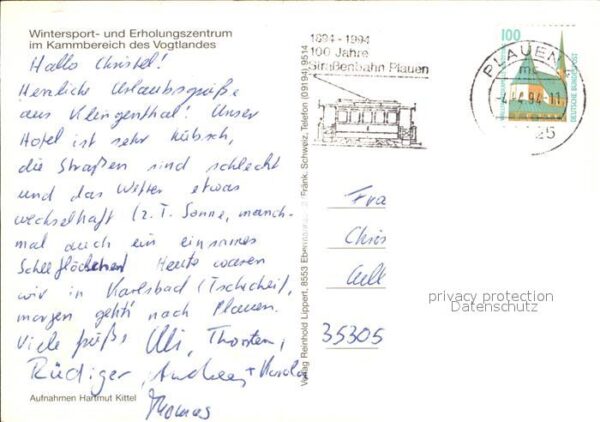 Wintersport- und Erholungszentrum
im Kammbereich des Vogtlandes
Hallo Christel!
Herzliche Urlaubsgrüße
aus Klingenthal! Unser
Hotel ist sehr hübsch,
die Straßen sind schlecht
und das Wetter etwas
wechselhaft (z.T. Sonne, manch-
mal auch ein einsames
Schneeflöckchen). Heute waren
wir in Karlsbad (Tschechei),
morgen geht's nach Plauen.
Viele Grüße Uli, Thorsten,
Rüdiger, Andreas +
Thomas
Aufnahmen Hartmut Kittel
Verlag Reinhold Lippert, 8553 Fränk. Schweiz, Telefon (09194) 9514
1894-1994
100 Jahre
Straßenbahn Plauen
PLAUEN
-4.-4.94-11
100
DEUTSCHE BUNDESPOST
Fra
Chris
35305
privacy protection
Datenschutz